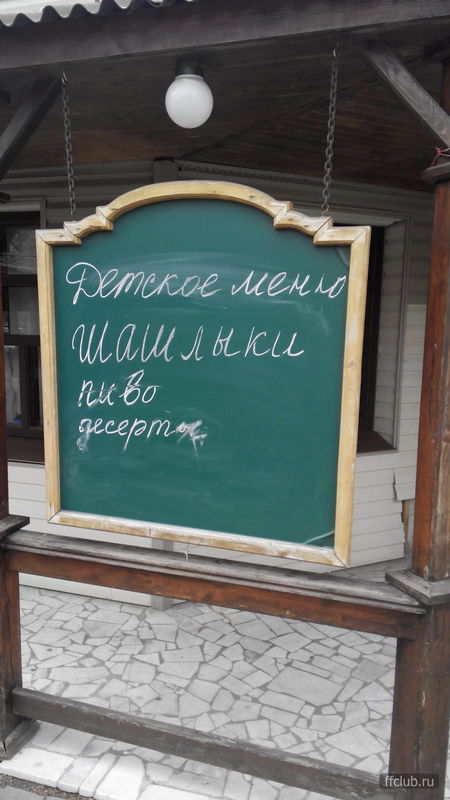 Детское меню
ШАШЛЫКИ
пиво
десерты
ffclub.ru